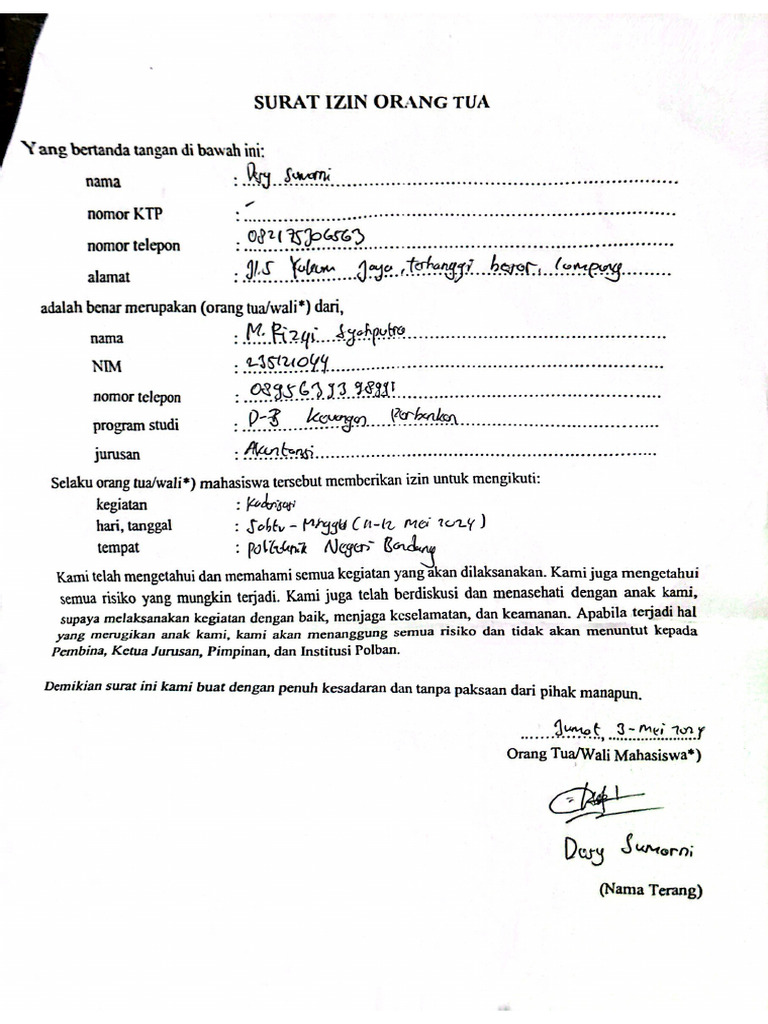 SURAT IZIN ORANG TUA
Yang bertanda tangan di bawah ini:
nama : Desy Sumarni
nomor KTP : -
nomor telepon : 082175306563
alamat : Jl.5 Yukum Jaya, terbanggi besar, Lampung
adalah benar merupakan (orang tua/wali*) dari,
nama : M. Rizqi Syahputra
NIM : 235121044
nomor telepon :
program studi : D-3 Keuangan Perbankan
jurusan : Akuntansi
Selaku orang tua/wali*) mahasiswa tersebut memberikan izin untuk mengikuti:
kegiatan : Kaderisasi
hari, tanggal : Sabtu - Minggu (11-12 Mei 2024)
tempat : Politeknik Negeri Bandung
Kami telah mengetahui dan memahami semua kegiatan yang akan dilaksanakan. Kami juga mengetahui
semua risiko yang mungkin terjadi. Kami juga telah berdiskusi dan menasehati dengan anak kami,
supaya melaksanakan kegiatan dengan baik, menjaga keselamatan, dan keamanan. Apabila terjadi hal
yang merugikan anak kami, kami akan menanggung semua risiko dan tidak akan menuntut kepada
Pembina, Ketua Jurusan, Pimpinan, dan Institusi Polban.
Demikian surat ini kami buat dengan penuh kesadaran dan tanpa paksaan dari pihak manapun.
Jumat, 3-Mei 2024
Orang Tua/Wali Mahasiswa*)
Desy Sumarni
(Nama Terang)